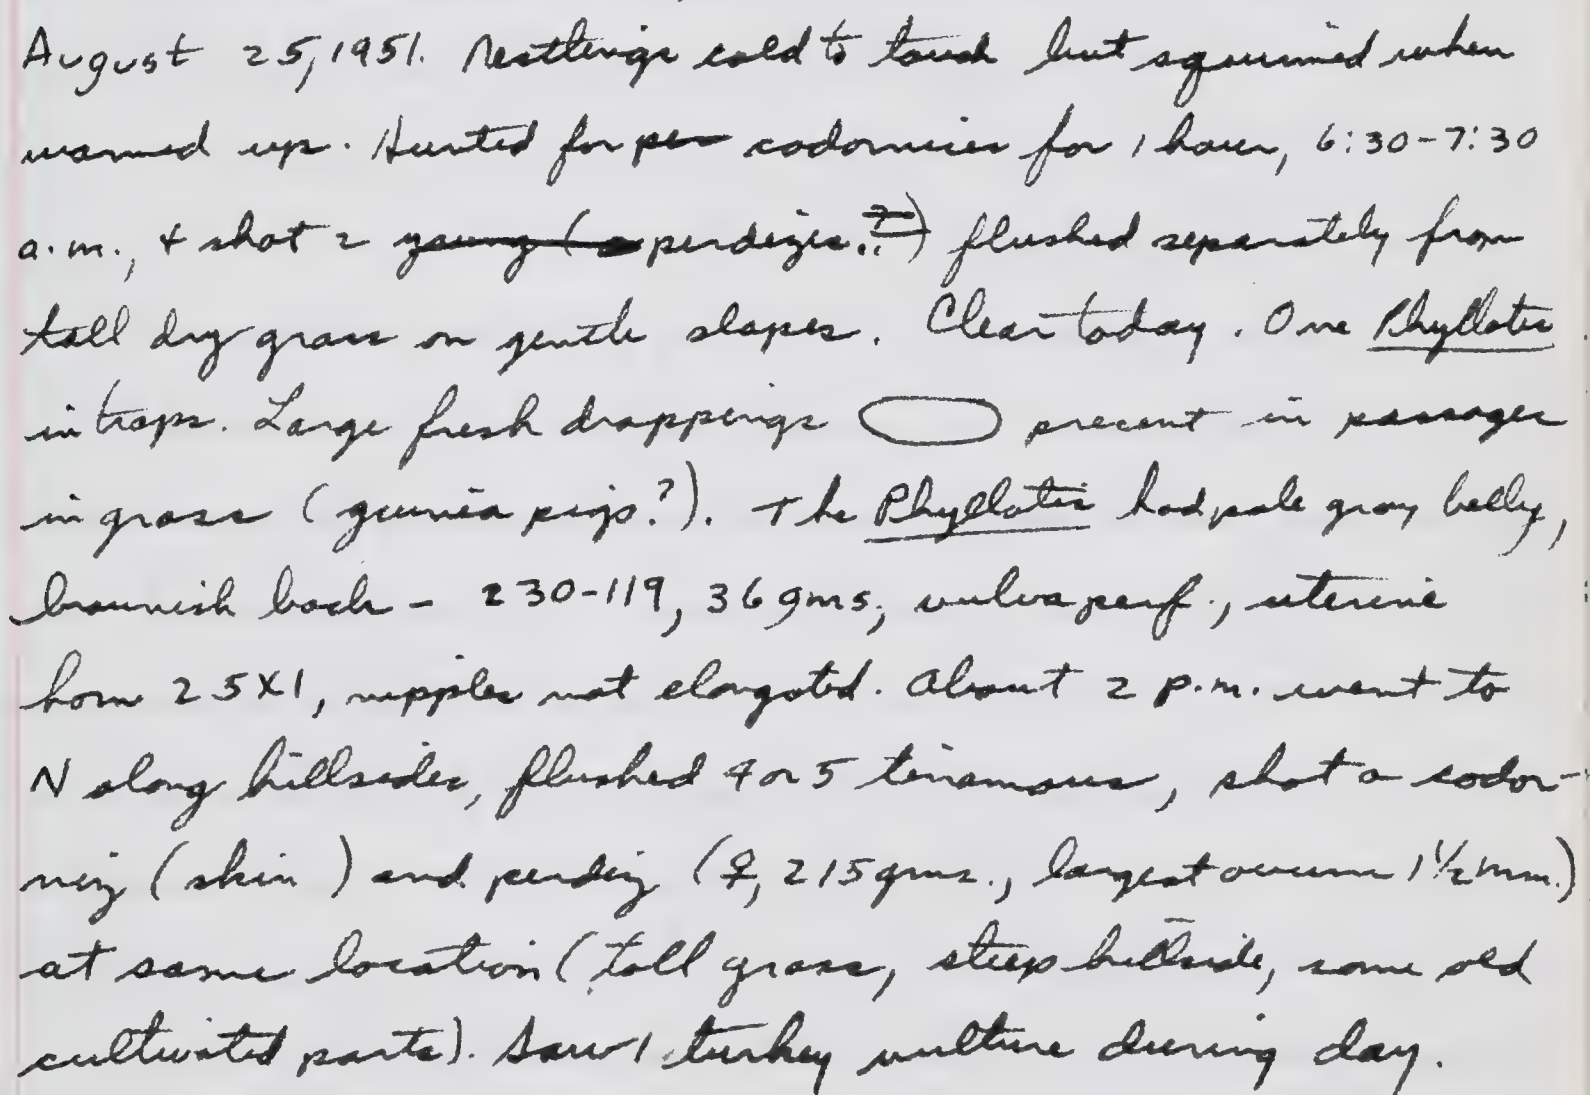 August 25, 1951. Nestlings cold to touch but squirmed when
warmed up. Hunted for per codornices for 1 hour, 6:30-7:30
a.m., + shot 2 young ( perdizes.?) flushed separately from
tall dry grass on gentle slopes. Clear today. One Phyllotis
in traps. Large fresh droppings present in passages
in grass (guinea pigs?). The Phyllotis had pale gray belly,
brownish back - 230-119, 36 gms, vulva perf., uterine
horn 25X1, nipples not elongated. About 2 p.m. went to
N along hillsides, flushed 4 or 5 tinamous, shot a codor-
niz (skin ) and perdiz (♀, 215 gms., largest ovum 1½ mm.)
at same location (tall grass, steep hillside, some old
cultivated parts). Saw 1 turkey vulture during day.